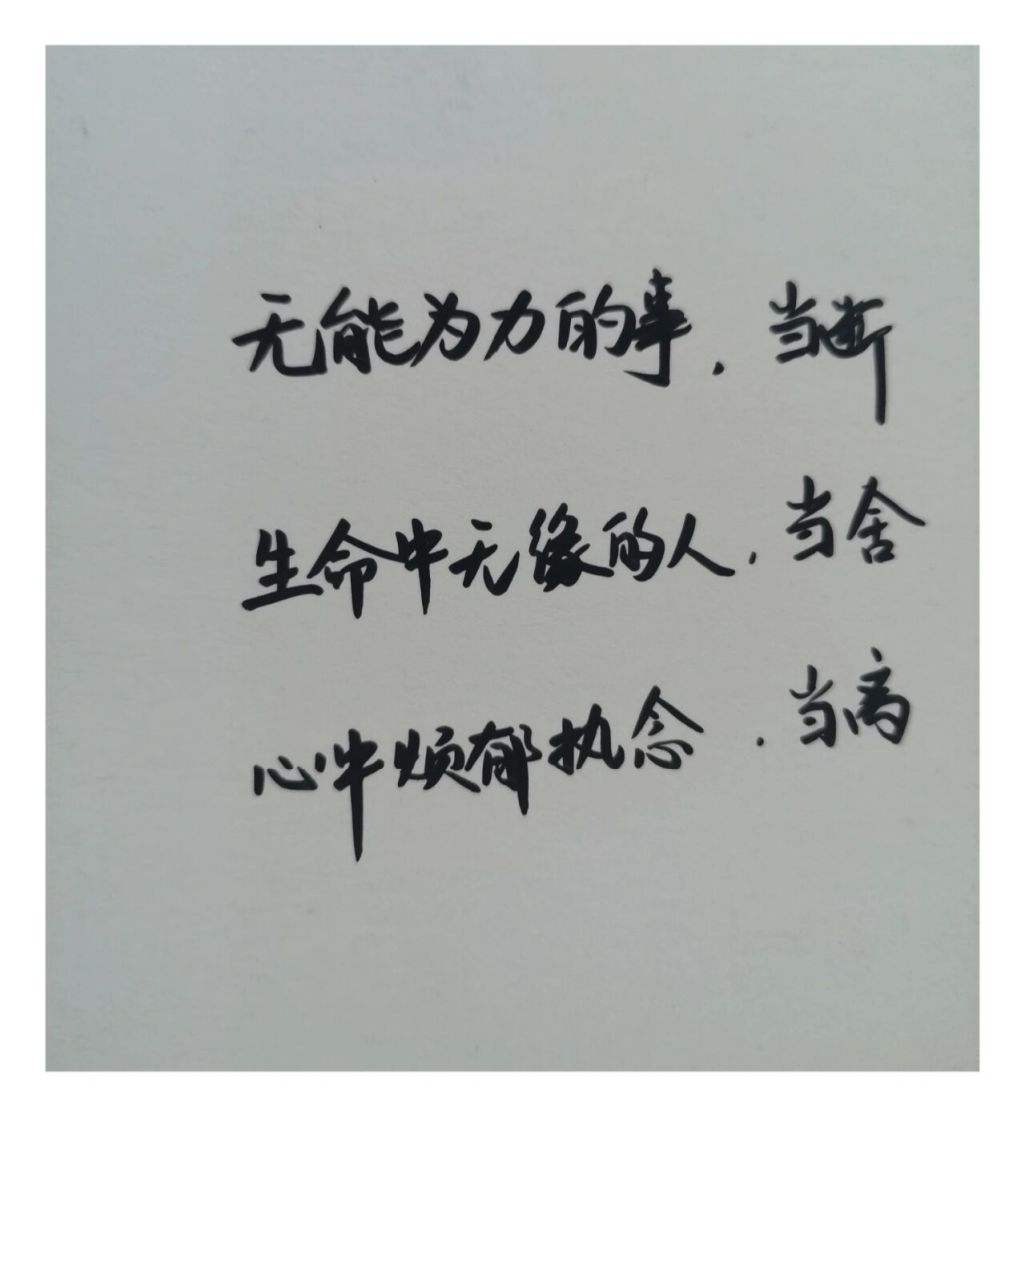 无能为力的事，当断
生命中无缘的人，当舍
心中烦郁执念，当离